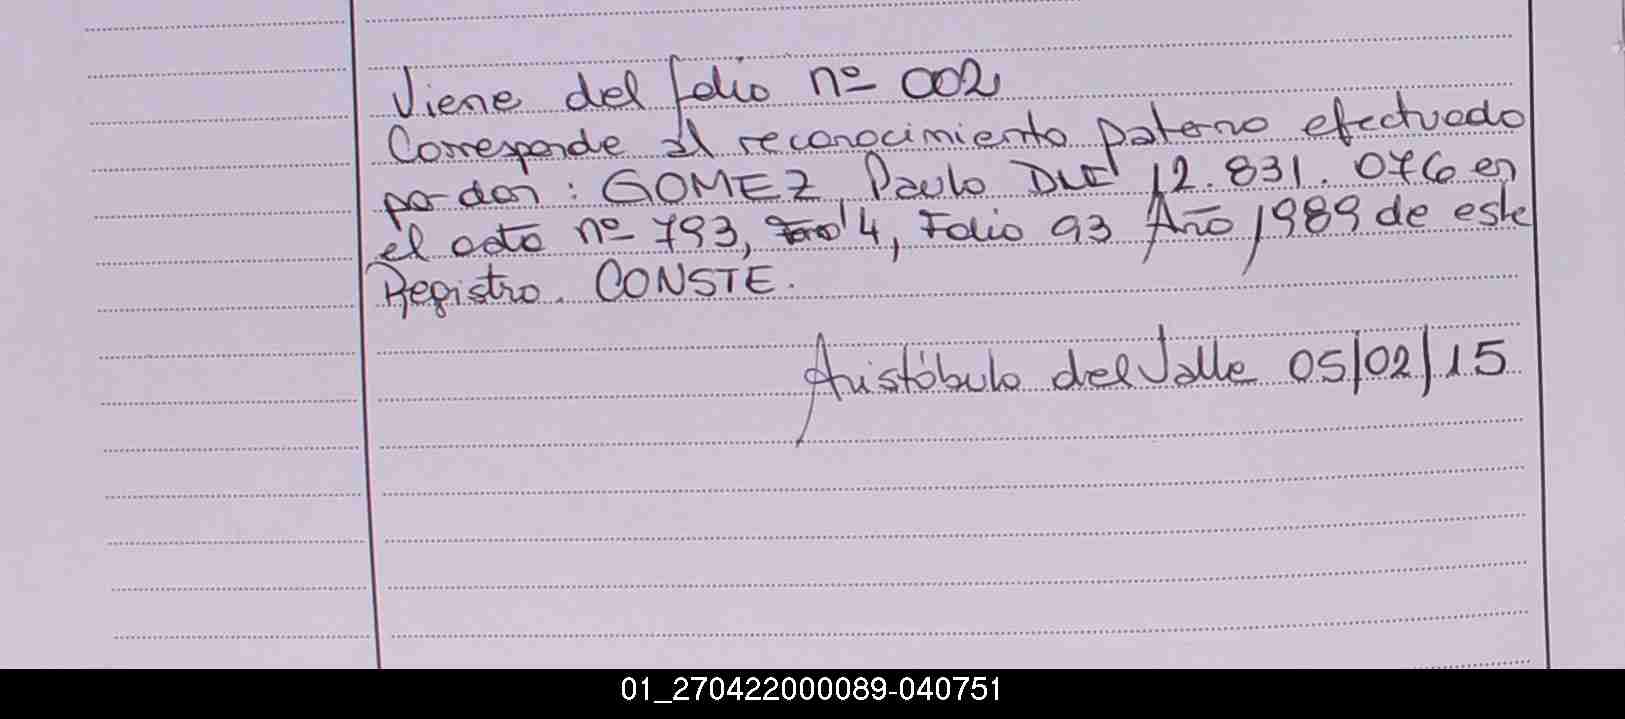 Viene del folio nº 002
Corresponde al reconocimiento paterno efectuado
po don: GOMEZ Paulo DNI 12.831.076 en
el acta nº 793, Tomo 4, Folio 93 Año 1989 de este
Registro. CONSTE.
Aristóbulo del Valle 05/02/15
01_270422000089-040751